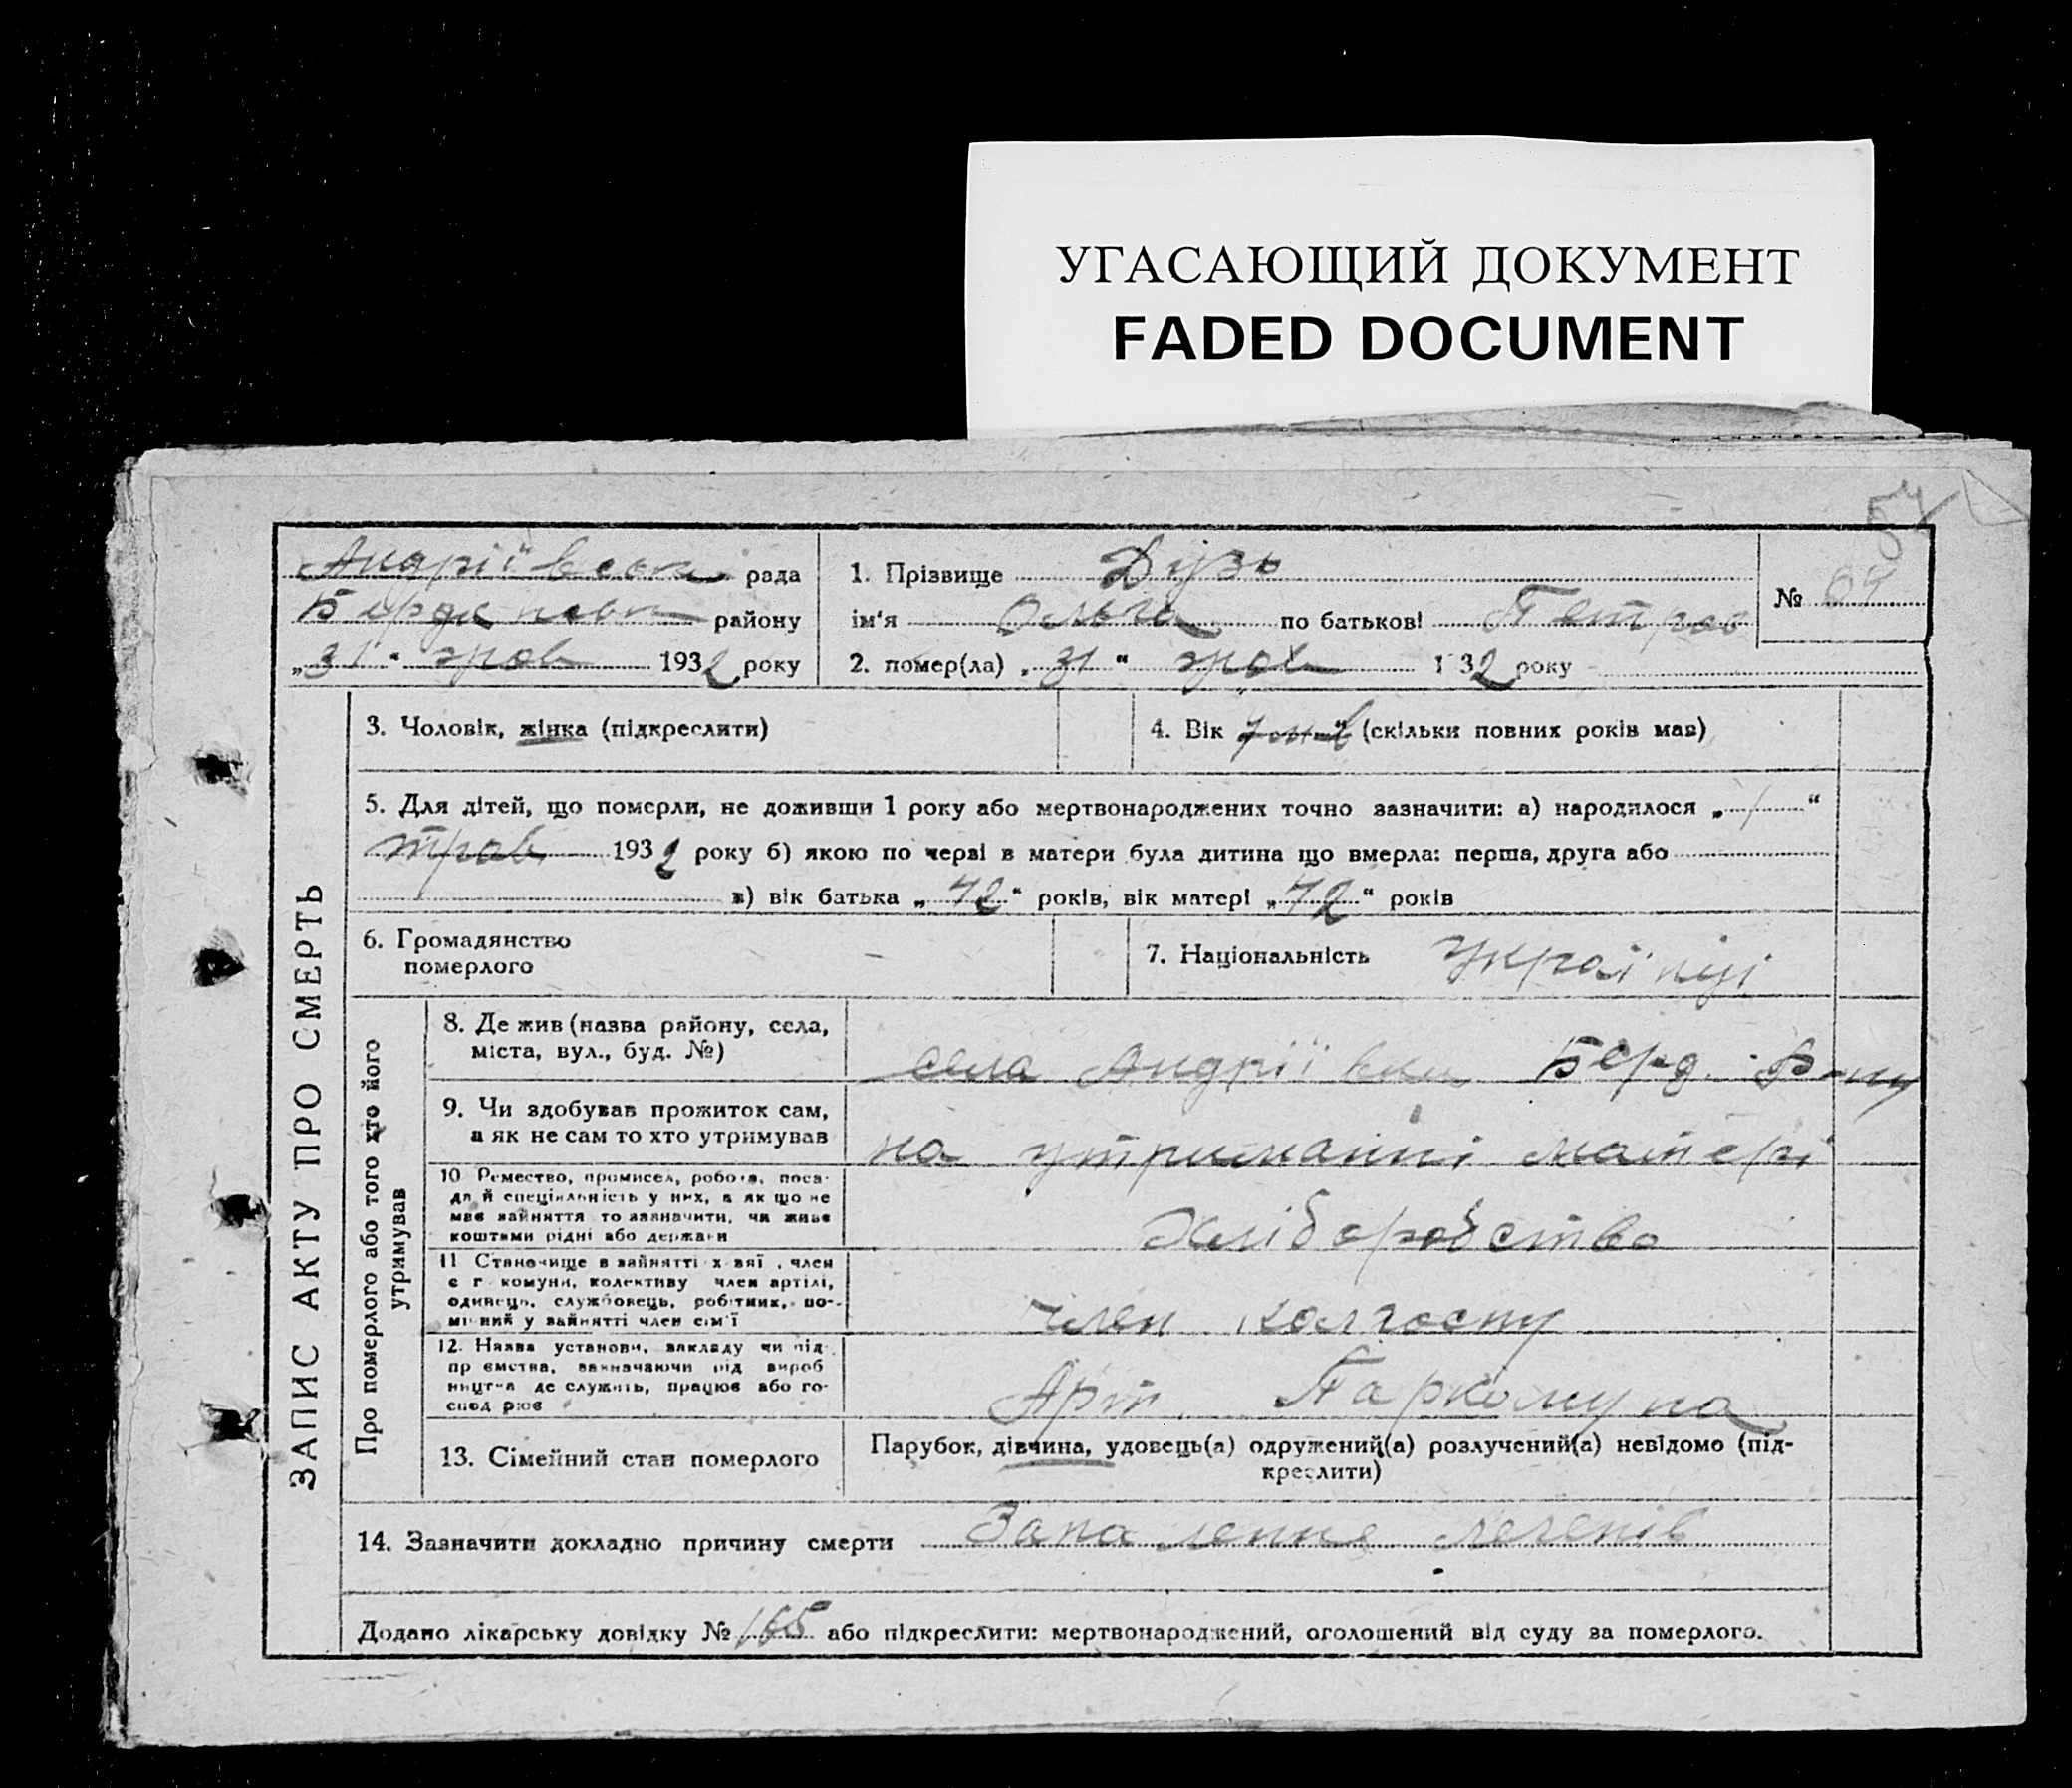 УГАСАЮЩИЙ ДОКУМЕНТ
FADED DOCUMENT
Андріївська рада
района району
„31“ 1932 року
1. Прізвище Дузь
ім'я Ольга по батькові Петров
№ 64
2. помер(ла) „31“ 1932 року
ЗАПИС АКТУ ПРО СМЕРТЬ
3. Чоловік, жінка (підкреслити)
4. Вік 7 м-в (скільки повних років мав)
5. Для дітей, що померли, не доживши 1 року або мертвонароджених точно зазначити: а) народилося „1“
трав 1932 року б) якою по черві в матери була дитина що вмерла: перша, друга або
в) вік батька „42“ років, вік матері „42“ років
6. Громадянство
померлого
7. Національність Українці
Про померлого або того хто його
утримував
8. Де жив (назва району, села,
міста, вул., буд. №)
села Андріївки Берд. Р-ну
9. Чи здобував прожиток сам,
а як не сам то хто утримував
на утриманні матері
10 Ремество, промисел, робота, поса-
да й спеціяльність у них, а як що не
має зайняття то зазначити, чи живе
коштами рідні або держави
Хліборобство
11 Становище в зайнятті х-зяї , член
с г комуни, колективу член артілі,
одинець, службовець, робітник, по-
мічний у зайнятті член сім'ї
член колгоспу
12. Назва установи, закладу чи під-
пр ємства, зазначаючи рід вироб
ництва де служить, працює або го-
спод рює
Арт. Паркомуна
13. Сімейний стан померлого
Парубок, дівчина, удовець(а) одружений(а) розлучений(а) невідомо (під-
креслити)
14. Зазначити докладно причину смерти Запалення легенів
Додано лікарську довідку № 165 або підкреслити: мертвонароджений, оголошений від суду за померлого.